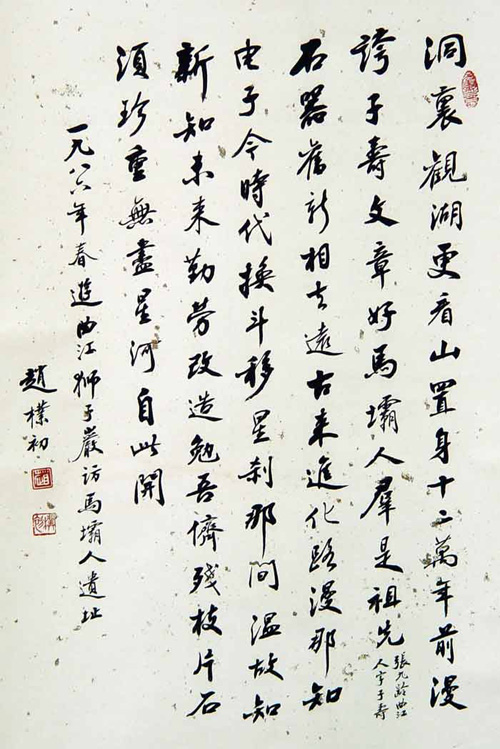 洞裏觀湖更看山置身十二萬年前漫
誇子壽文章好馬壩人羣是祖先
張九齡曲江
人字子壽
石器舊新相去遠古來進化路漫那知
电子令時代換斗移星剎那间温故知
新知未来勤劳改造勉吾儕殘枝片石
須珍重無盡星河自此開
一九八六年春遊曲江獅子巖訪馬壩人遺址
趙樸初